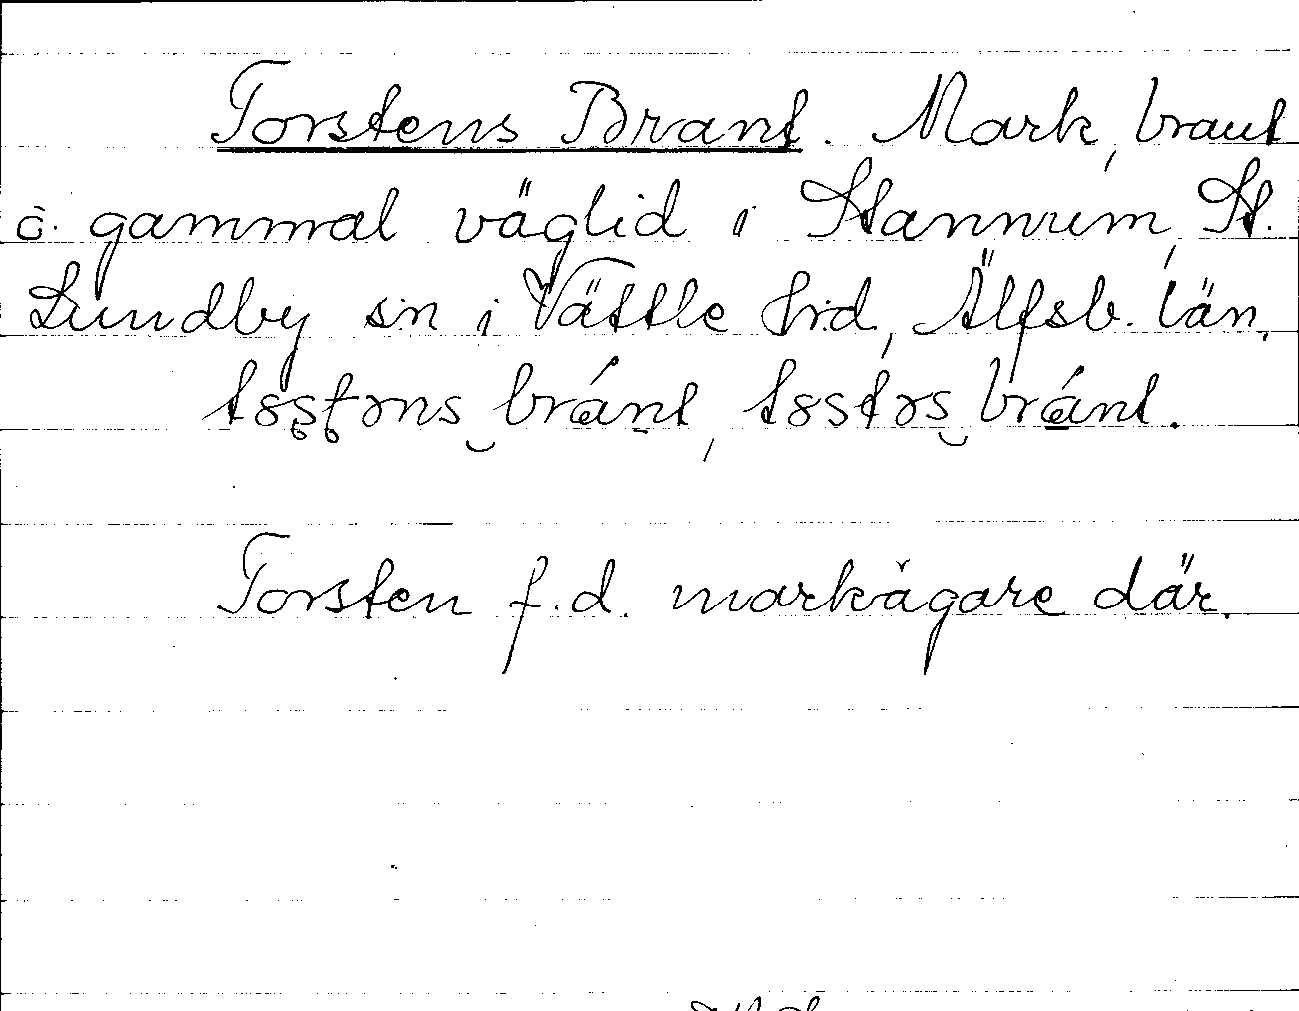 Torstens Brant. Mark, brant
o. gammal väglid i Stannum, St.
Lundby sn i Vättle hd, Älfsb. län.
bránt, bránt.
Torsten f.d. markägare där.